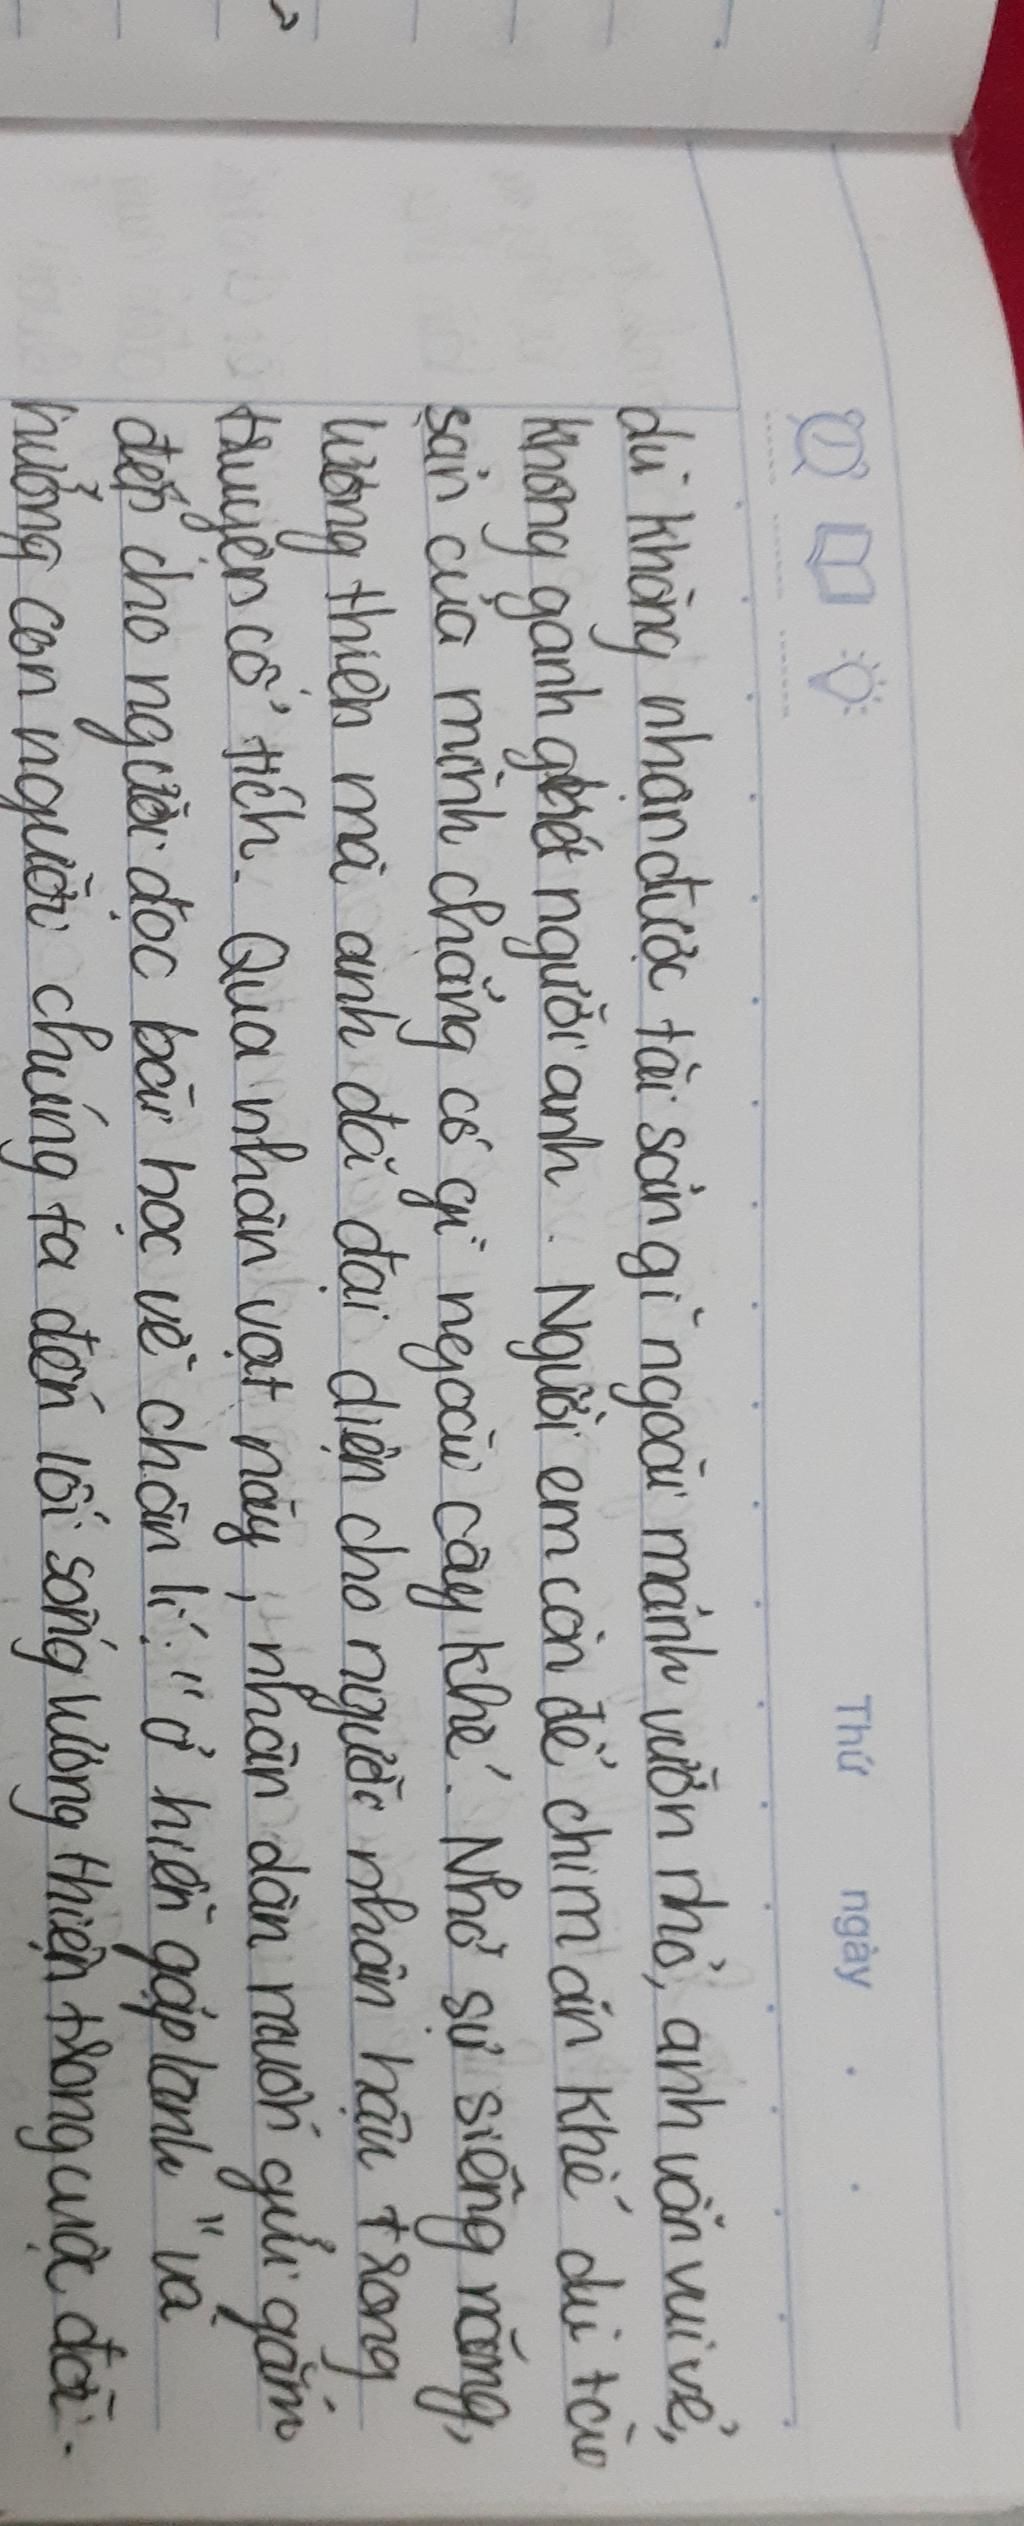 Thứ ngày . .
dù không nhận được tài sản gì ngoài mảnh vườn nhỏ, anh vẫn vui vẻ,
không ganh ghét người anh. Người em còn để chim ăn khế dù tài
sản của mình chẳng có gì ngoài cây khế. Nhờ sự siêng năng,
lương thiện mà anh đã đại diện cho người nhân hậu trong
truyện cổ tích. Qua nhân vật này, nhân dân muốn gửi gắm
đến cho người đọc bài học về chân lí: "ở hiền gặp lành" và
hướng con người chúng ta đến lối sống lương thiện trong cuộc đời.